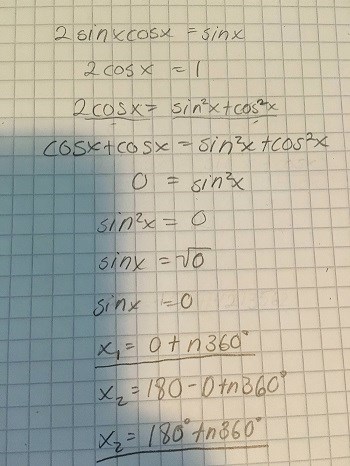 2 sinxcosx = sinx
2cosx = 1
2cosx = sin²x+cos²x
cosx+cosx = sin²x+cos²x
0 = sin²x
sin²x = 0
sinx = √0
sinx = 0
x₁ = 0 + n360°
x₂ = 180 - 0 + n360°
x₂ = 180° + n360°